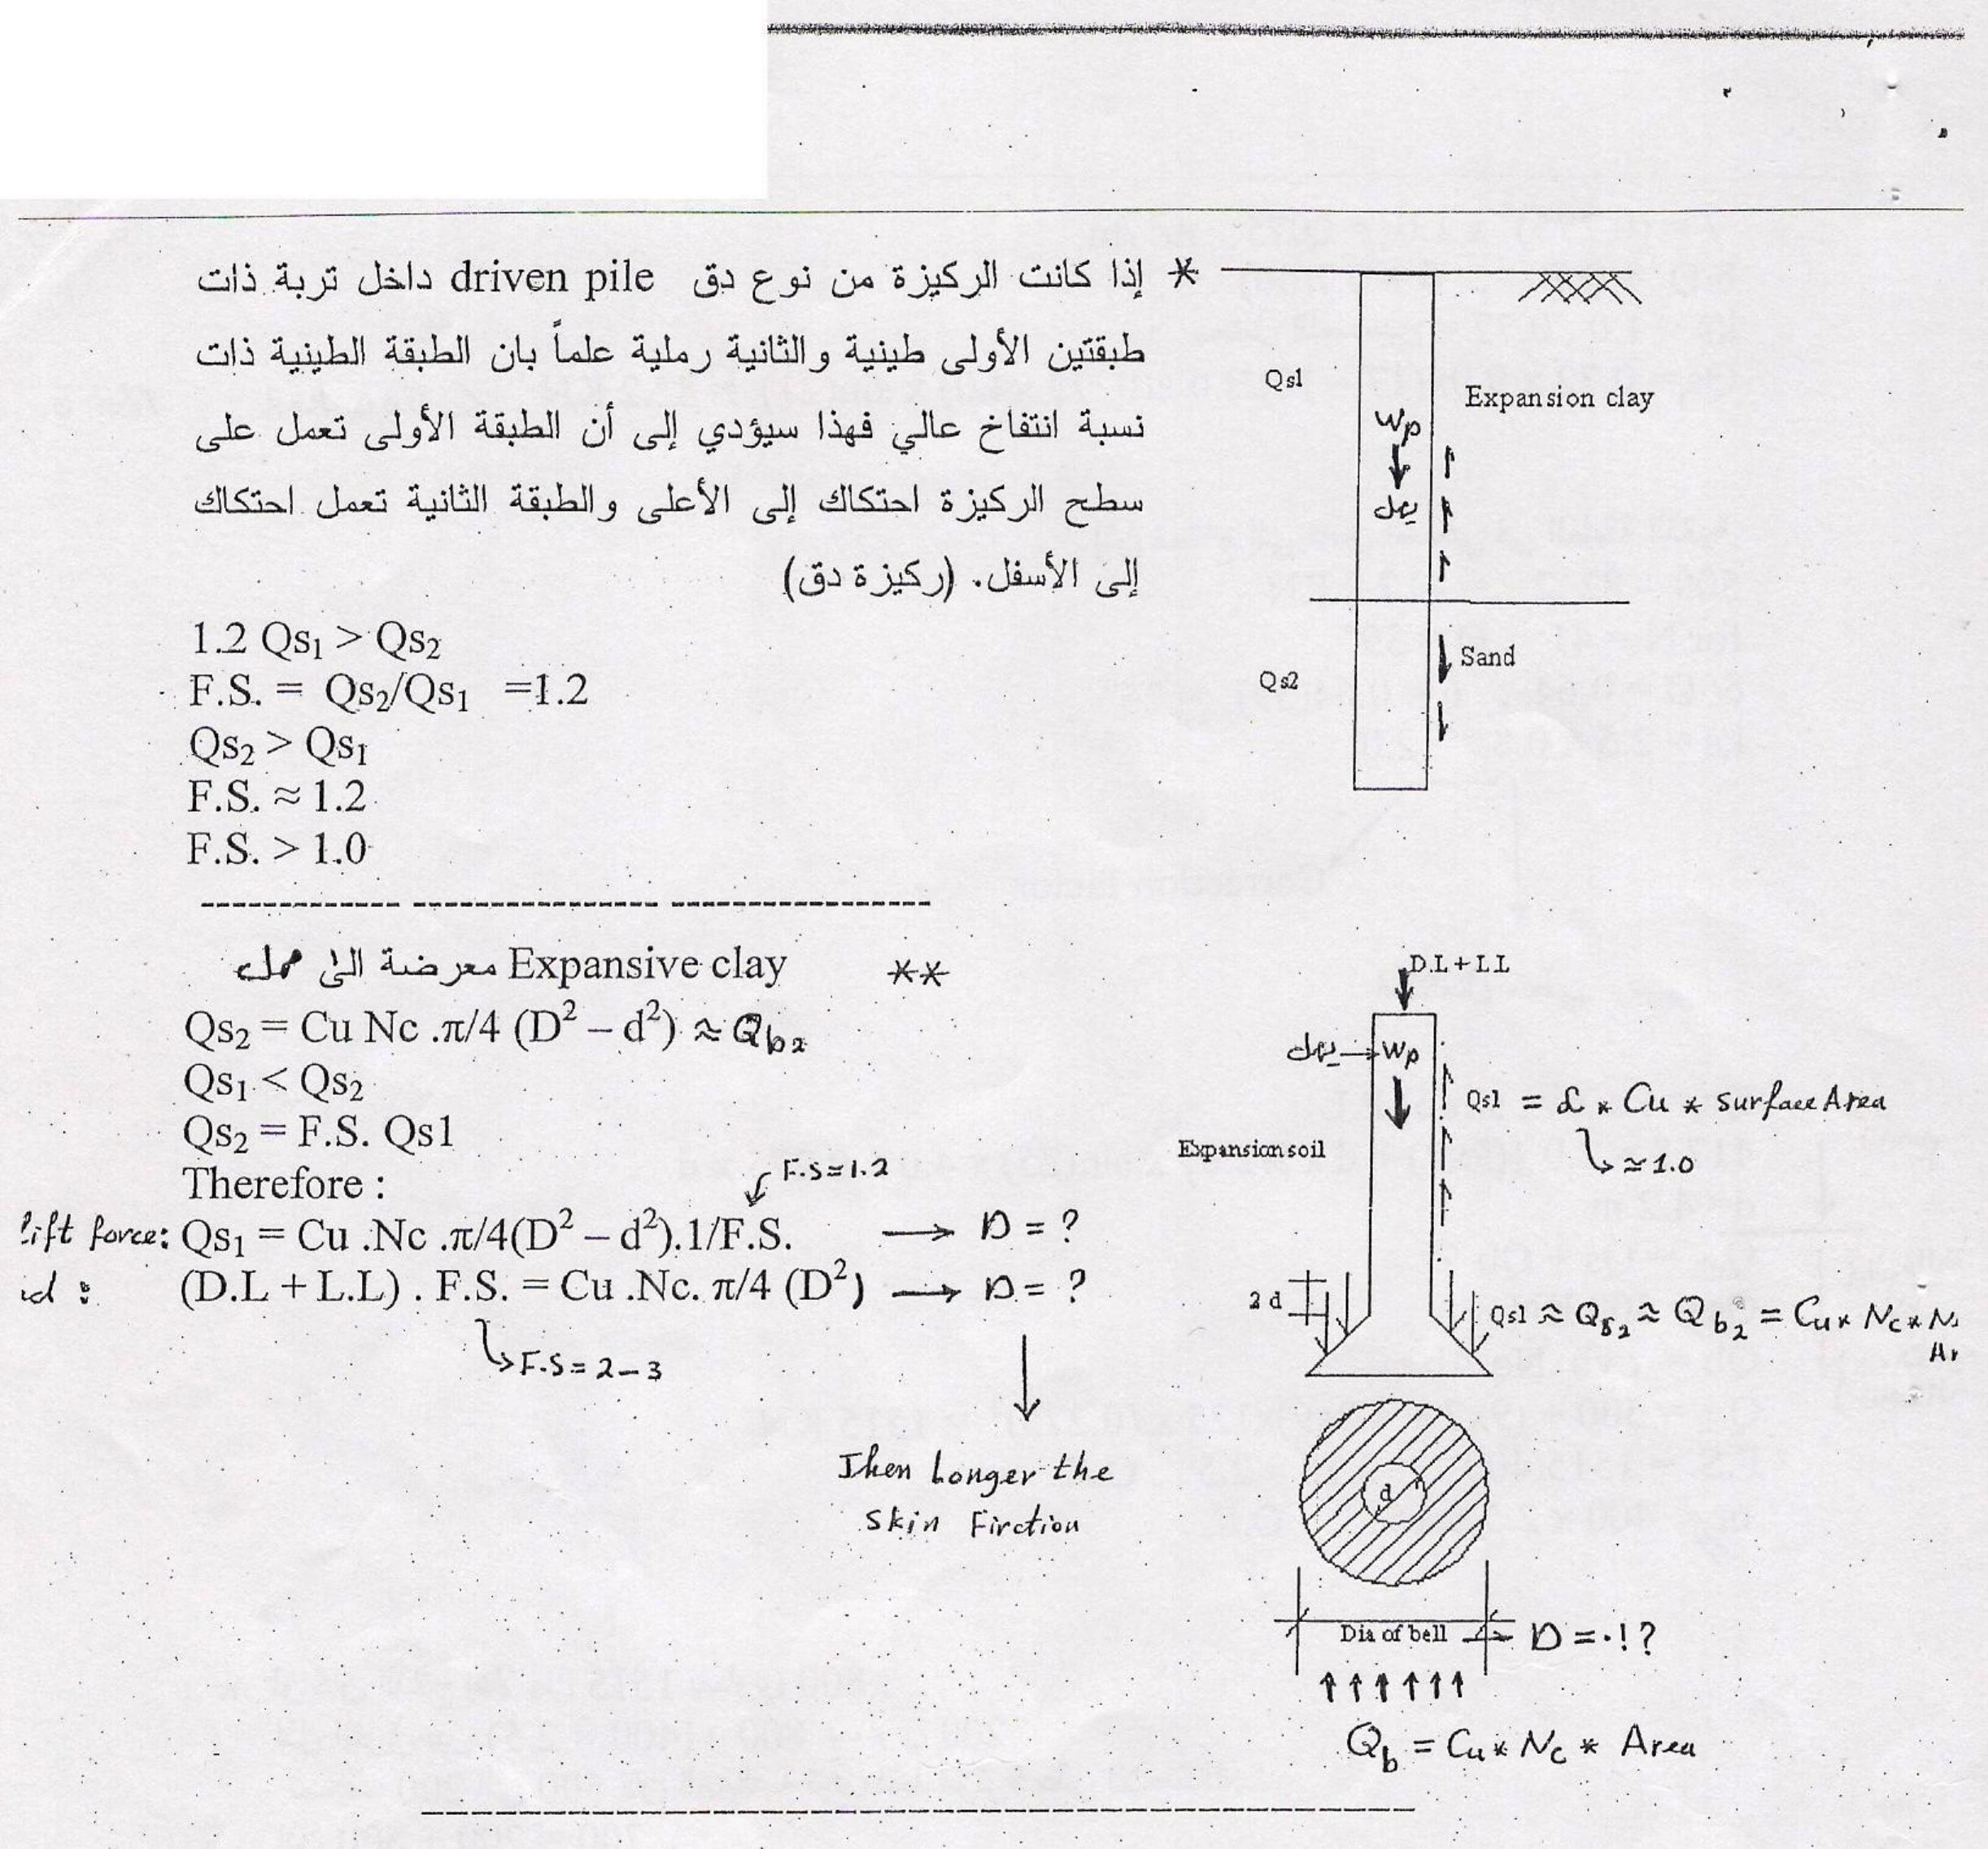 * إذا كانت الركيزة من نوع دق driven pile داخل تربة ذات
طبقتين الأولى طينية والثانية رملية علماً بان الطبقة الطينية ذات
نسبة انتفاخ عالي فهذا سيؤدي إلى أن الطبقة الأولى تعمل على
سطح الركيزة احتكاك إلى الأعلى والطبقة الثانية تعمل احتكاك
إلى الأسفل. (ركيزة دق)
Qs1
Expansion clay
Wp
يهمل
Sand
Qs2
1.2 Qs₁ > Qs₂
F.S. = Qs₂/Qs₁ =1.2
Qs₂ > Qs₁
F.S. ≈ 1.2
F.S. > 1.0
** Expansive clay معرضة الى
Qs₂ = Cu Nc .π/4 (D² – d²) ≈ Qb₂
Qs₁ < Qs₂
Qs₂ = F.S. Qs1
Therefore :
F.S = 1.2
lift force: Qs₁ = Cu .Nc .π/4(D² – d²).1/F.S. → D = ?
(D.L + L.L) . F.S. = Cu .Nc. π/4 (D²) → D = ?
↳ F.S = 2 – 3
Then Longer the
Skin Firction
D.L+L.L
يهمل → Wp
Qs1 = α * Cu * surface Area
↳ ≈ 1.0
Expansion soil
2d
Qs1 ≈ Qs₂ ≈ Qb₂ = Cu * Nc *
d
Dia of bell = D = ! ?
Qb = Cu * Nc * Area